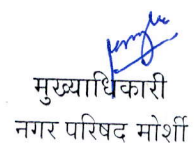 मुख्याधिकारी
नगर परिषद मोर्शी